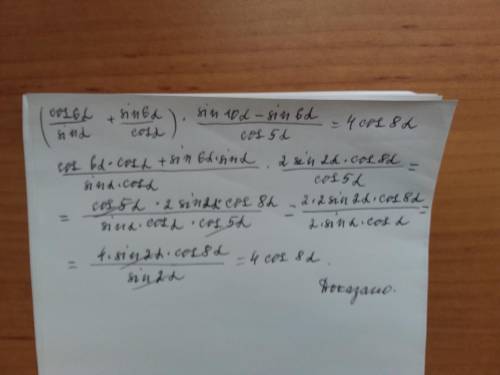 (cos6α/sinα + sin6α/cosα) · (sin10α - sin6α)/cos5α = 4cos8α
(cos6α·cosα + sin6α·sinα)/(sinα·cosα) · (2sin2α·cos8α)/cos5α =
= (cos5α · 2sin2α·cos8α)/(sinα·cosα·cos5α) = (2·2sin2α·cos8α)/(2·sinα·cosα) =
= (4·sin2α·cos8α)/sin2α = 4cos8α.
Доказано.